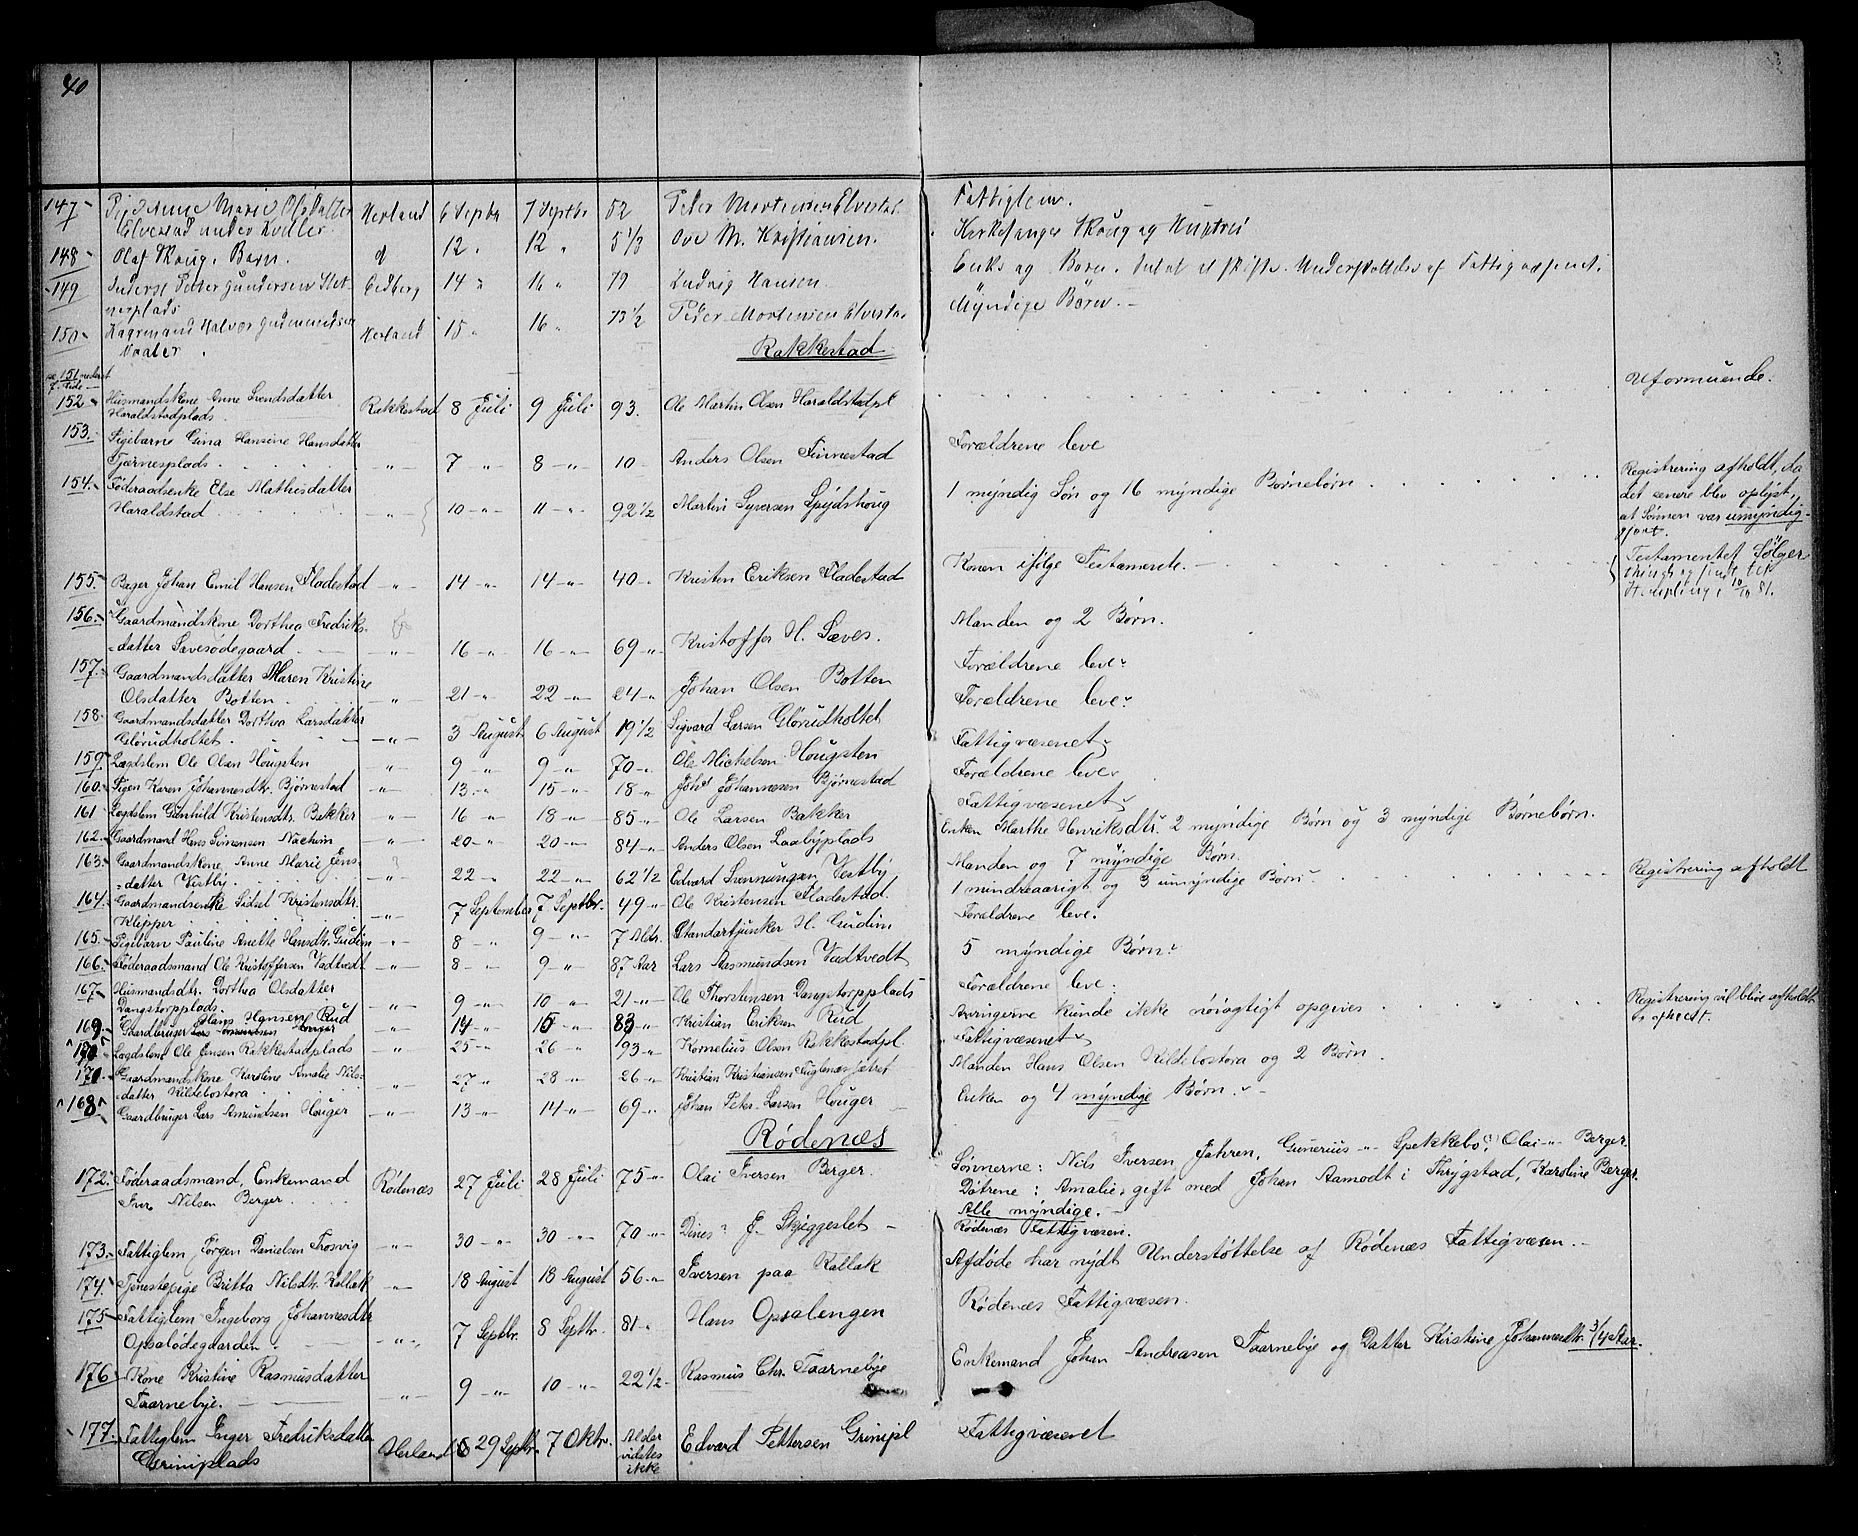 40
147 Pige Anne Marie Olsdatter Herland 6 Septbr 7 Septbr 52 Peter Mortensen Elvestad Fattiglem.
Elvestad under Kveller.
148 Olaf Skoug, Barn. 12 " 12 " 5 1/3 Ove M. Kristiansen. Kirkesanger Skoug og Hustru
149 Inderst Peter Gundersen Eidberg 14 " 16 " 79 Ludvig Hansen. Enke og Børn. Understøttelse af Fattigvæsenet.
150 Gaardmand Halvor Gudmundsen Herland 15 " 16 " 73 1/2 Peter Mortensen Elvestad Myndige Børn.
Rakkestad
151 nederst f. Side
152 Husmandskone Anne Svendsdatter Uformuende.
Haraldstadplads. Rakkestad 8 Juli 9 Juli 93. Ole Martin Olsen Haraldstadpl.
153. Pigebarn Lina Hansine Hansdatter Forældrene leve
Tjærnesplads. -"- 7 -"- 8 -"- 10 Anders Olsen Finnestad
154. Føderaadsenke Else Mathisdatter 1 myndig Søn og 16 myndige Børnebørn. Registrering afholdt, da
Haraldstad -"- 10 -"- 11 -"- 92 1/2 Martin Syversen Spydskoug det senere blev oplyst,
at Sønnen var umyndig-
gjort.
155. Bager Johan Emil Hansen Fladestad -"- 14 -"- 14 -"- 40 Kristen Eriksen Fladestad Konen ifølge Testamente. Testamentet følger
156. Gaardmandskone Dorthea Fredriks- Manden og 2 Børn.
datter Sævesødegaard -"- 16 -"- 16 -"- 69 -"- Kristoffer H. Sæves.
157. Gaardmandsdatter Maren Kristine Forældrene leve
Olsdatter Botten -"- 21 -"- 22 -"- 24 -"- Johan Olsen Botten
158. Gaardmandsdatter Dorthea Larsdatter Forældrene leve
Glørudholtet. -"- 3 August 6 August 19 1/2 Sigvard Larsen Glørudholtet
159 Lægdslem Ole Olsen Hougsten -"- 9 -"- 9 -"- 70 -"- Ole Mickelsen Hougsten Fattigvæsenet
160. Pigen Karen Johannesdtr. Bjørnestad -"- 13 -"- 15 -"- 18 -"- Johs Johannesen Bjørnestad Forældrene leve
161 Lægdslem Gunhild Kristensdtr. Bakker -"- 16 -"- 18 -"- 85 -"- Ole Larsen Bakker Fattigvæsenet
162. Gaardmand Hans Simensen -"- 20 -"- 20 -"- 84 -"- Anders Olsen Laabyplads Enken Marthe Henriksdtr. 2 myndige Børn og 3 myndige Børnebørn.
163. Gaardmandskone Anne Marie Jens-
datter Vestby. -"- 22 -"- 22 -"- 62 1/2 Edvard Svennungsen Vestby Manden og 7 myndige Børn. Registrering afholdt
164. Gaardmandsenke Sidsel Kristensdtr. 1 mindreaarigt og 3 umyndige Børn
Klepper -"- 7 September 7 Septbr. 49 -"- Ole Kristensen Fladestad.
165. Pigebarn Pauline Anette Hansdtr. Gudim -"- 8 -"- 9 -"- 7 Mdr. Standartjunker H. Gudim Forældrene leve.
166. Føderaadsmand Ole Kristoffersen Vadtvedt -"- 8 -"- 9 -"- 87 Aar Lars Aasmundsen Vadtvedt 5 myndige Børn
167. Husmandsdtr. Dorthea Olsdatter
Dangstorpplads. -"- 9 -"- 10 -"- 21 -"- Ole Thorstensen Dangstorpplads Forældrene leve
169. Gaardbruger Hans Hansen Rud -"- 14 -"- 15 -"- 83 -"- Kristian Eriksen Rud Arvingerne kunde ikke nøiagtigt opgives Registrering vil blive afholdt
er afholdt.
170 Lægdslem Ole Jensen Rakkestadplads -"- 25 -"- 26 -"- 93 -"- Kornelius Olsen Rakkestadpl. Fattigvæsenet
171 Gaardmandskone Karoline Amalie Nils-
datter Kildebostora -"- 27 -"- 28 -"- 26 -"- Kristian Kristiansen Manden Hans Olsen Kildebostora og 2 Børn.
168 Gaardbruger Lars Amundsen Houger -"- 13 -"- 14 -"- 69 -"- Johan Peter Larsen Houger Enken og 4 myndige Børn.
Rødenæs
172. Føderaadsmand, Enkemand Rødenæs 27 Juli 28 Juli 75 -"- Olai Iversen Berger. Sønnerne: Nils Iversen Jahren, Gunerius -"- Spekkebo, Olai -"- Berger.
Iver Nilsen Berger Døtrene: Amalie, gift med Johan Aamodt i Thrygstad, Karoline Berger.
Alle myndige.
173. Fattiglem Jørgen Danielsen Trosvig -"- 30 -"- 30 -"- 70 -"- Dines J. Skjeggeslet Rødenæs Fattigvæsen.
174. Tjenestepige Britta Nilsdtr. Kallak -"- 18 August 18 August 56 -"- Iversen paa Kallak Afdøde har nydt Understøttelse af Rødenæs Fattigvæsen.
175 Fattiglem Ingeborg Johannesdtr.
Opsalødegaarden. -"- 7 Septbr. 8 Septbr. 81 -"- Hans Opsalengen Rødenæs Fattigvæsen.
176 Kone Kristine Rasmusdatter
Taarnebye. -"- 9 -"- 10 -"- 22 1/2 Rasmus Chr. Taarnebye Enkemand Johan Andreasen Taarnebye og Datter Kirstine Johannesdtr. 3/4 Aar.
177. Fattiglem Inger Fredriksdatter Herland 29 Septbr. 7 Oktbr. Alder vidstes ikke Edvard Pettersen Grinipl Fattigvæsenet
Griniplads